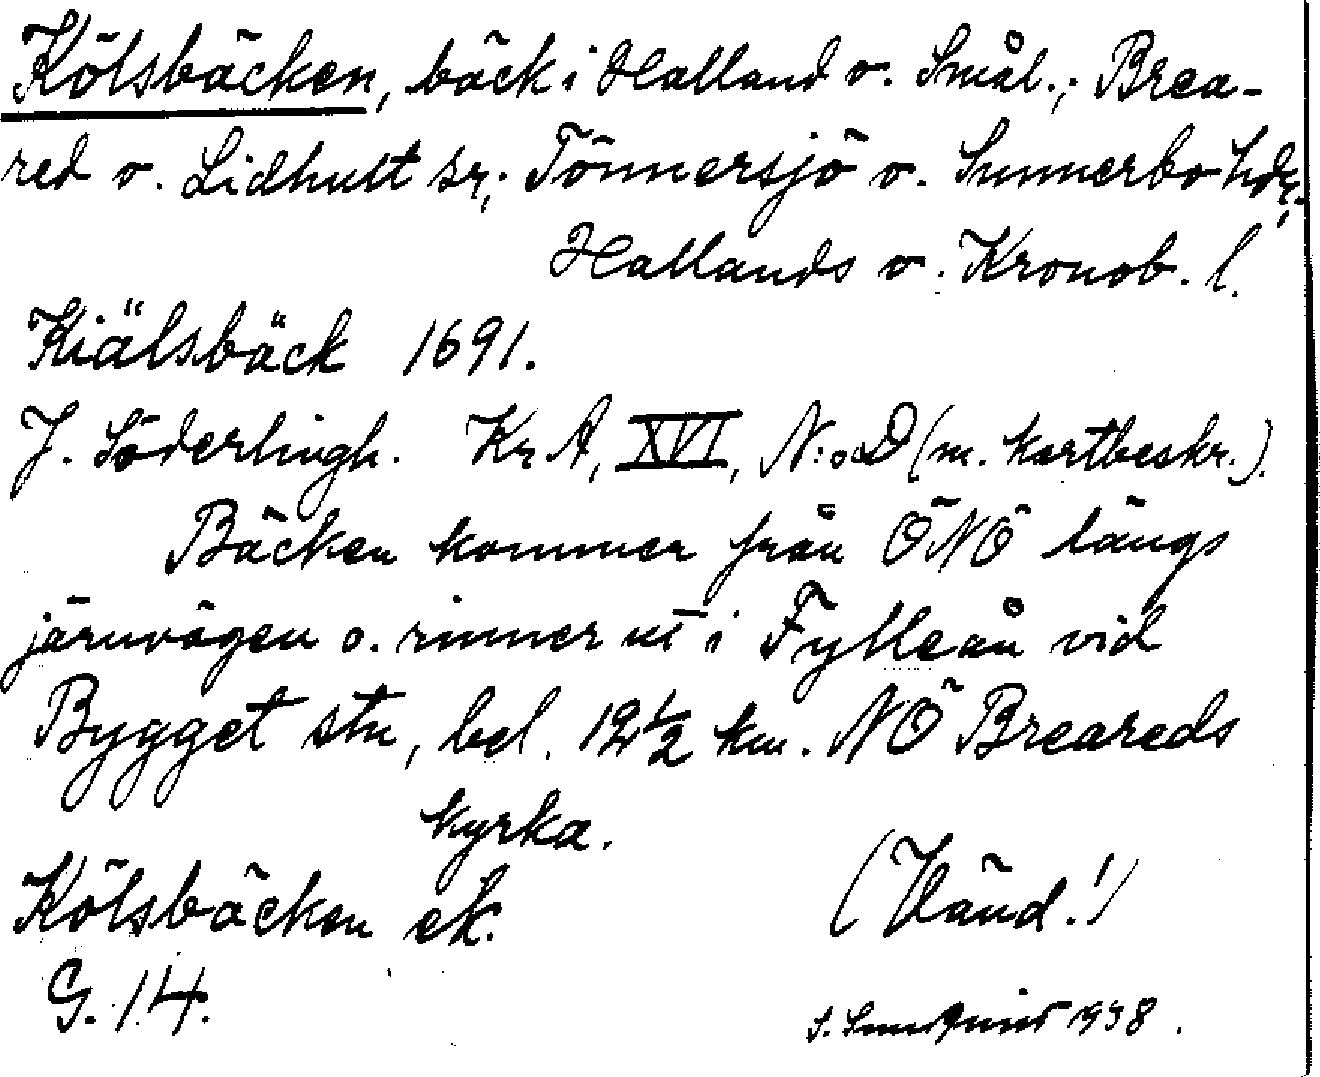 Kölsbäcken, bäck i Halland o. Smål.; Brea-
red o. Lidhult sr; Tönnersjö o. Sunnerbo hdr;
Hallands o. Kronob. l.
Kiälsbäck 1691.
J. Söderlingh. Kr A, XVI, N:o D (m. kartbeskr.).
Bäcken kommer från ÖNÖ längs
järnvägen o. rinner ut i Fylleån vid
Bygget stn, bel. 12 1/2 km. NÖ Breareds
kyrka.
Kölsbäcken ek.
(Vänd!)
G. 14.
S. Sundquist 1938.